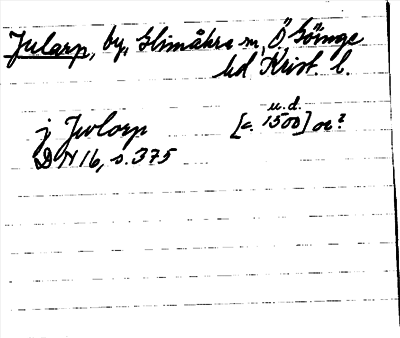 Jularp, by, Glimåkra sn, Ö Göinge
hd Krist. l.
u.d.
j Jwlorp [c. 1500] or?
DN 16, s. 375